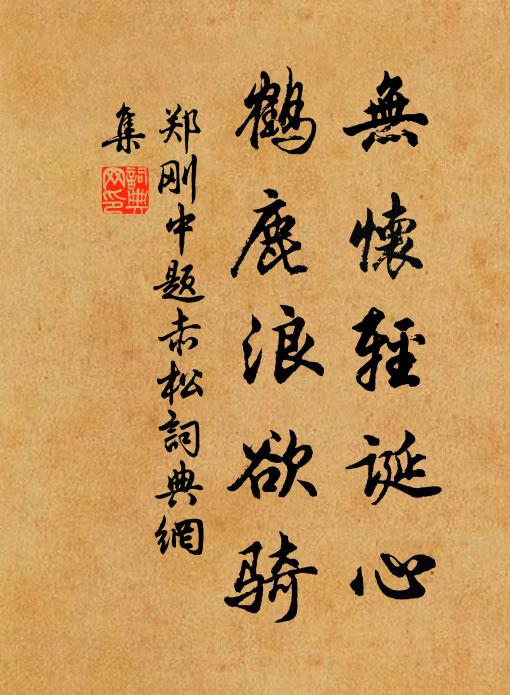 無懷輕誕心
鶴鹿浪欲骑
郑刚中题赤松詞典網
集
詞典
网印